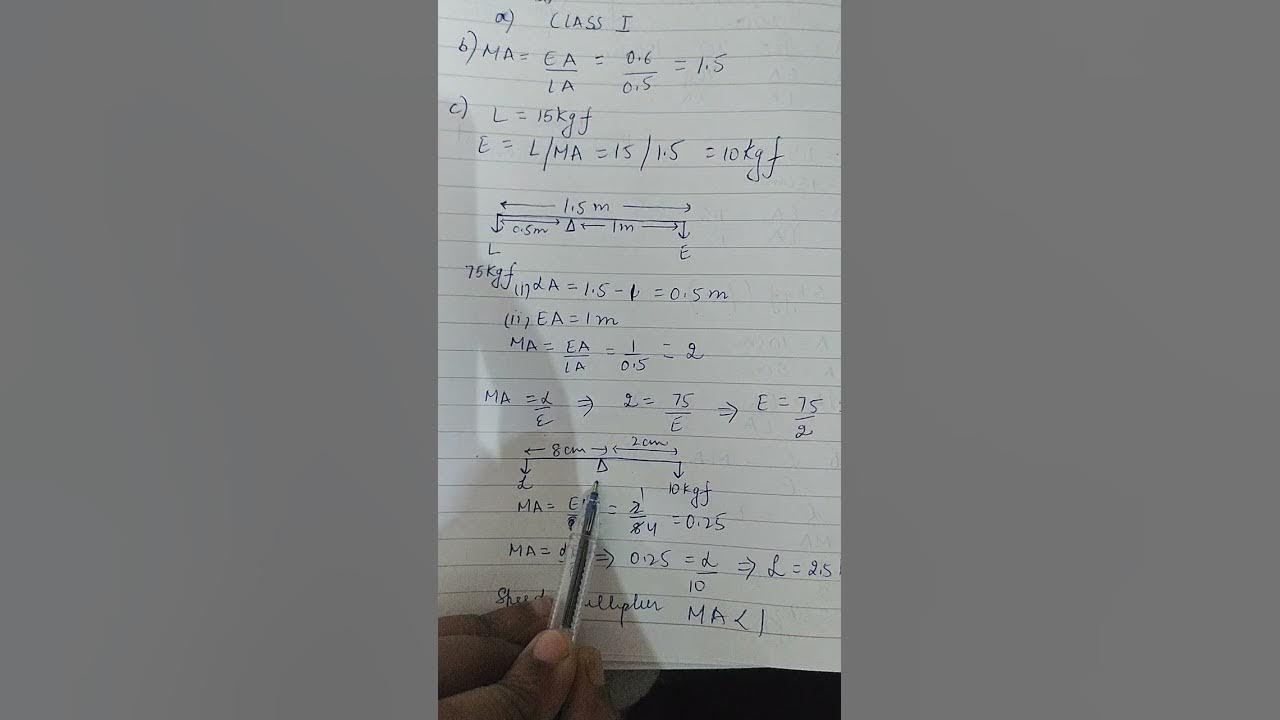 a) CLASS I
b) MA = EA/LA = 0.6/0.5 = 1.5
c) L = 15kgf
E = L/MA = 15/1.5 = 10kgf
1.5m
0.5m Δ 1m
L E
75kgf
(i) LA = 1.5 - 1 = 0.5m
(ii) EA = 1m
MA = EA/LA = 1/0.5 = 2
MA = L/E ⇒ 2 = 75/E ⇒ E = 75/2
8cm 2cm
Δ
L 10kgf
MA = = 2/8 1 4 = 0.25
MA = ⇒ 0.25 = L/10 ⇒ L = 2.5
MA < 1